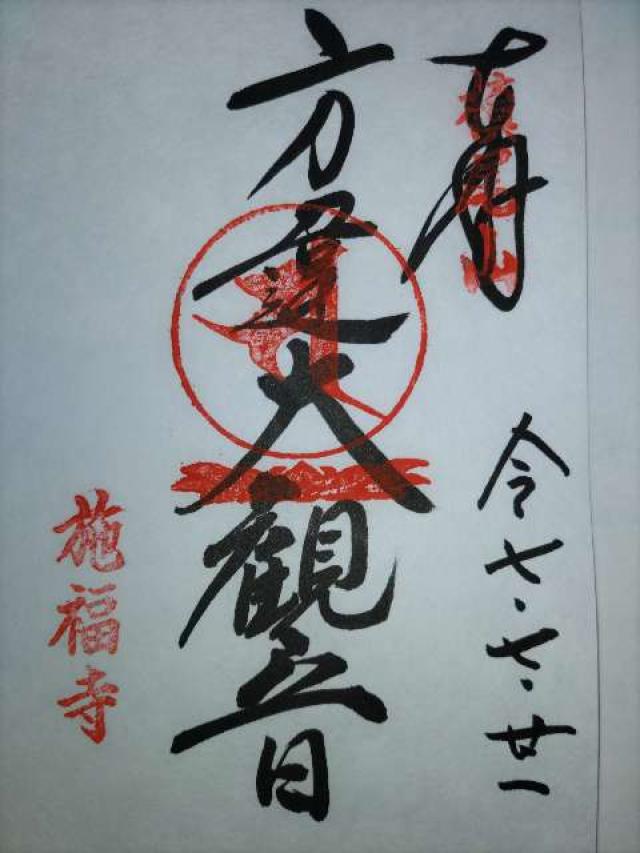 奉拝
令七・七・廿一
方違大観音
施福寺